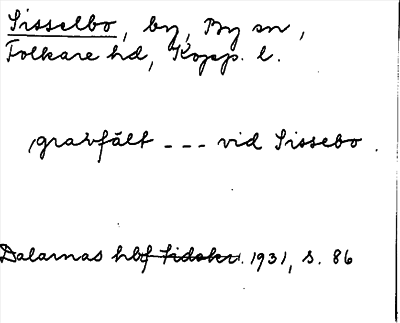 Sisselbo, by, By sn,
Folkare hd, Kopp. l.
gravfält --- vid Sissebo.
Dalarnas hbf Tidskr. 1931, s. 86